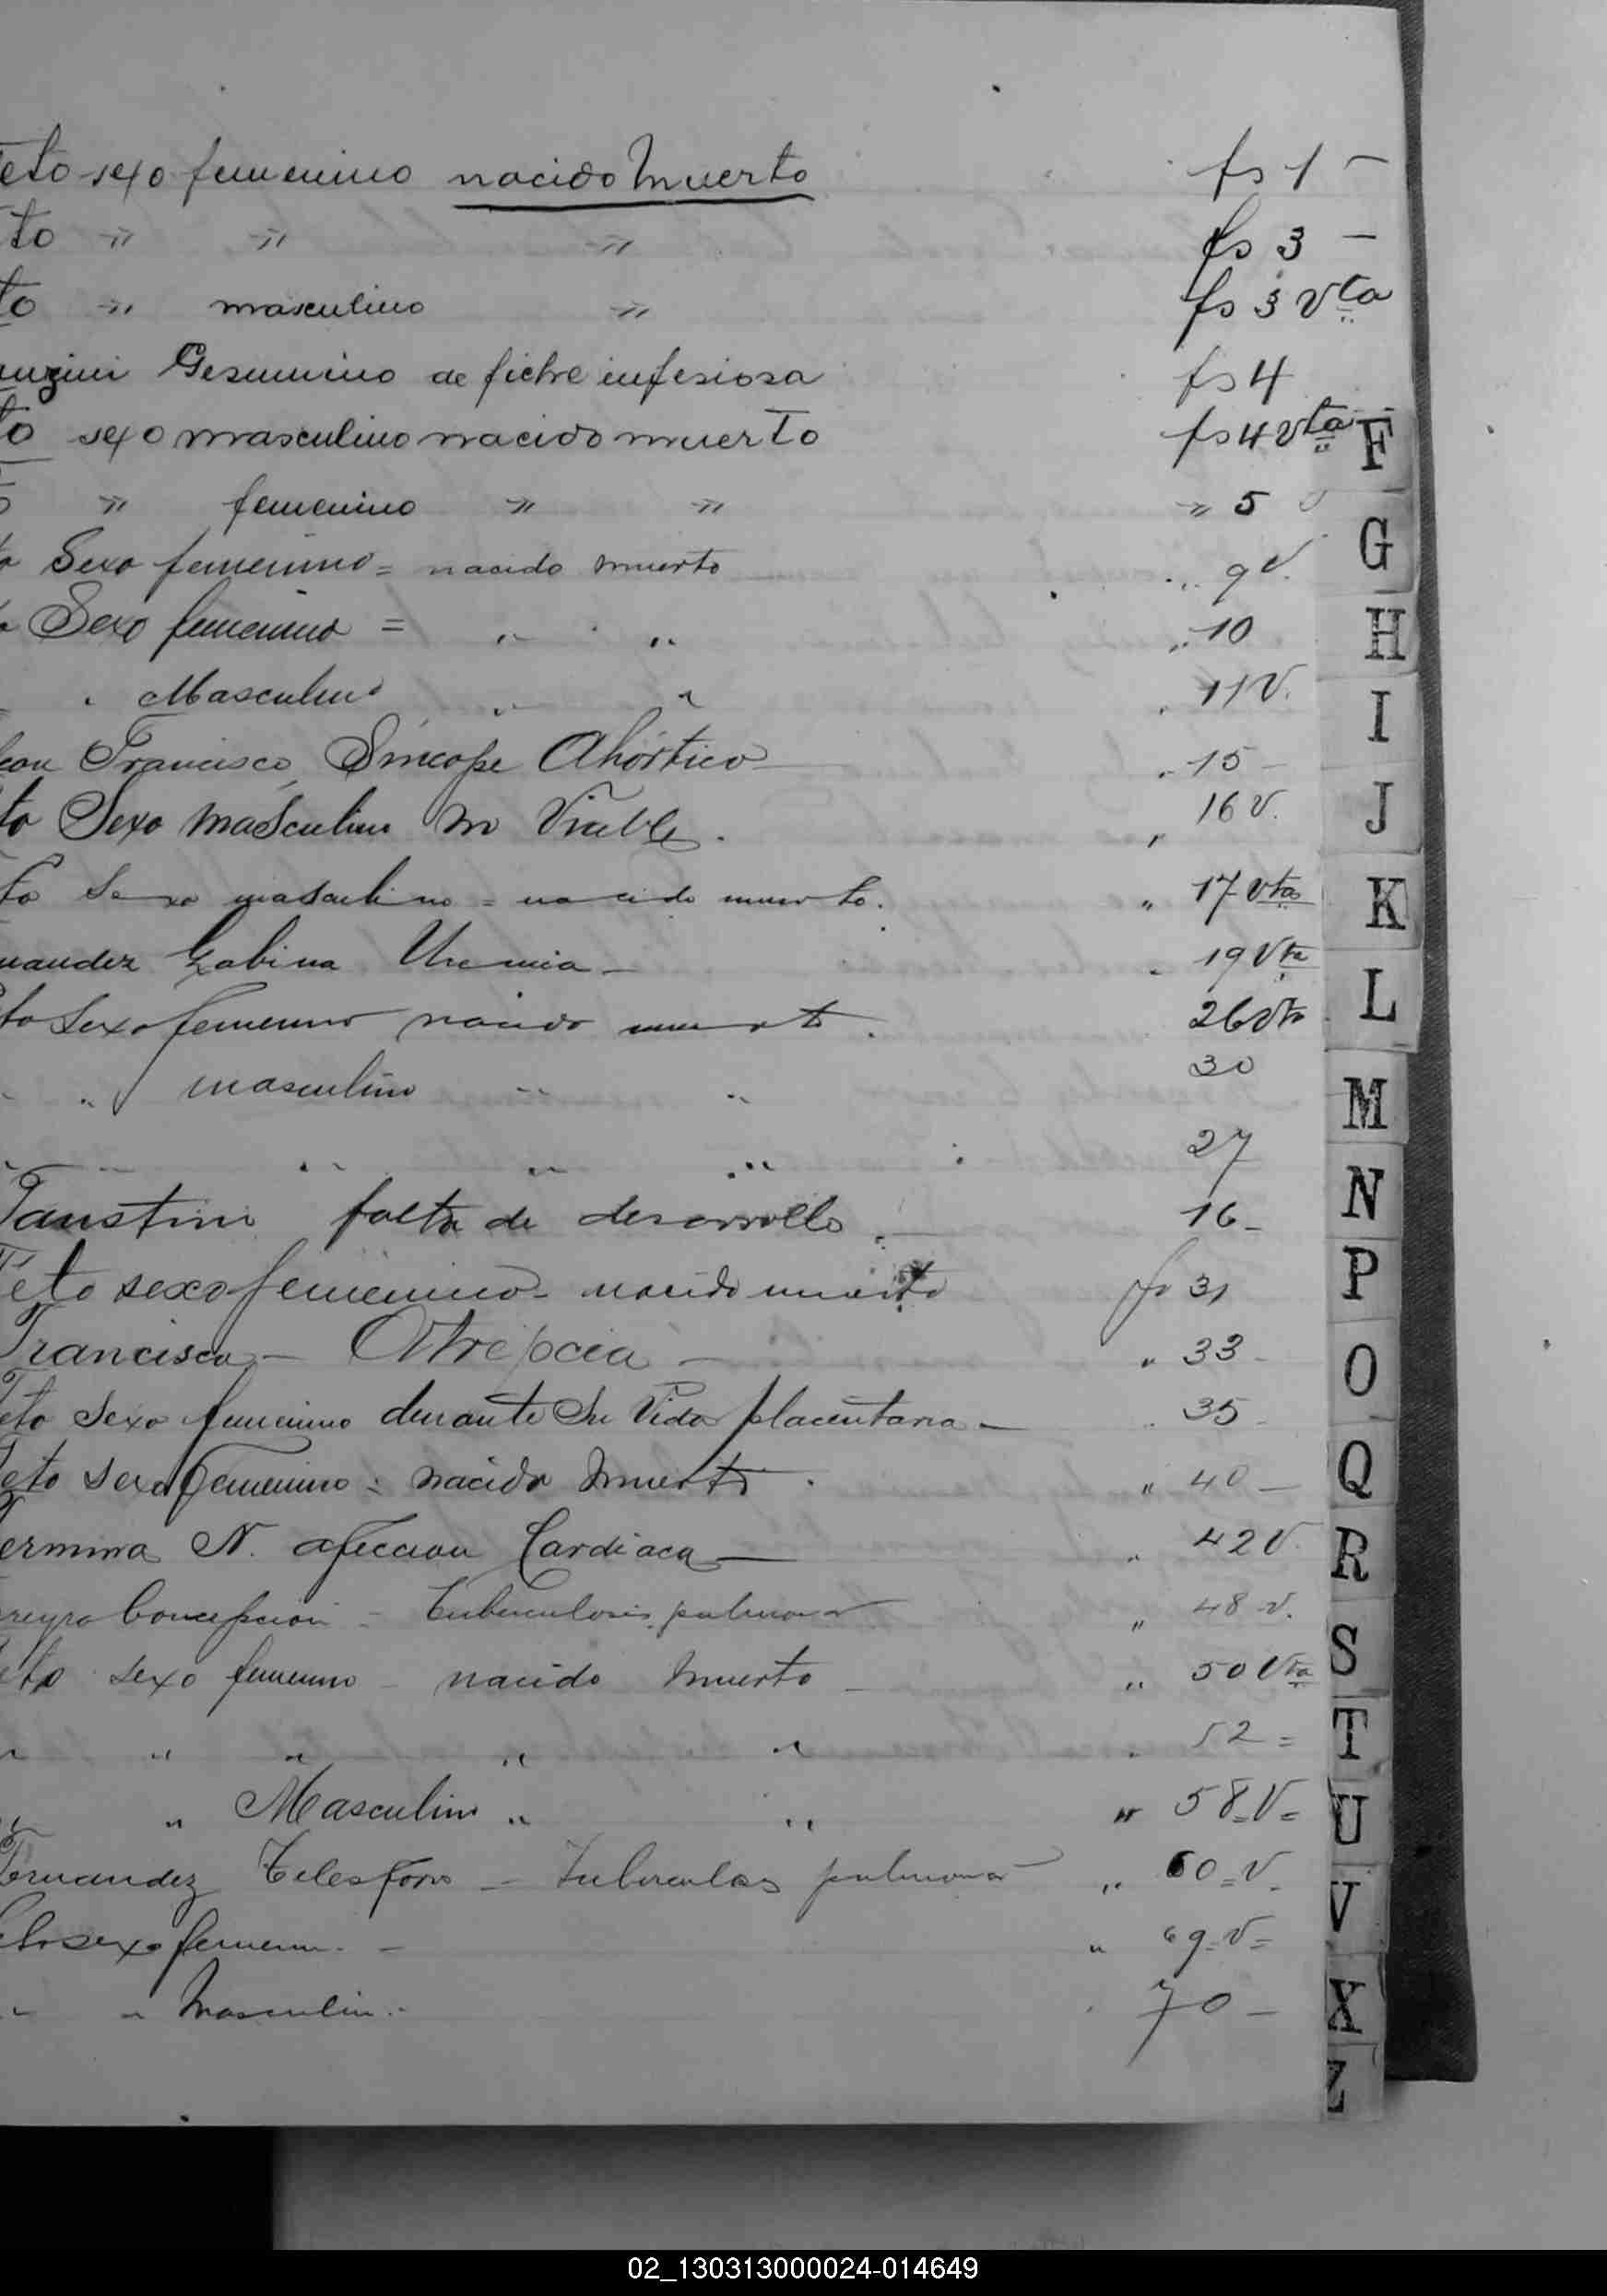 eto sexo femenino nacido Muerto fs 1 –
to " " " fs 3 –
to " masculino " fs 3 Vta
Gesumino de fiebre infesiosa fs 4
to sexo masculino nacido muerto fs 4 Vta
" femenino " " " 5
Sexo femenino = nacido muerto " 9 V.
Sexo femenino = " " " 10
" Masculino " " " 11 V.
Francisco Síncope Ahórtico " 15 –
to Sexo masculino no Viable. " 16 V.
to Sexo masculino = nacido muerto. " 17 Vta
nandez Gabina Uremia – " 19 Vta
to Sexo femenino nacido muerto. 26 Vta
" " masculino " " 30
" " " " " 27
Faustini falta de desarrollo 16 –
Feto sexo femenino – nacido muerto fs 31
Francisca – Atrepcia – " 33 –
eto Sexo femenino durante Su Vida placentaria – " 35 –
eto Sexo Femenino = nacido Muerto. " 40 –
ermina N. afeccion Cardiaca – " 42 V.
reyra Concepcion – Tuberculosis pulmonar " 48 v.
eto sexo femenino – nacido Muerto – " 50 Vta
" " " " " " 52 =
" " Masculino " " " 58 = V =
Fernandez Telesforo – Tuberculosis pulmonar " 60 = V.
eto sexo femenin. – " 69 = V =
" " Masculin. " 70 –
F
G
H
I
J
K
L
M
N
P
O
Q
R
S
T
U
V
X
Z
02_130313000024-014649